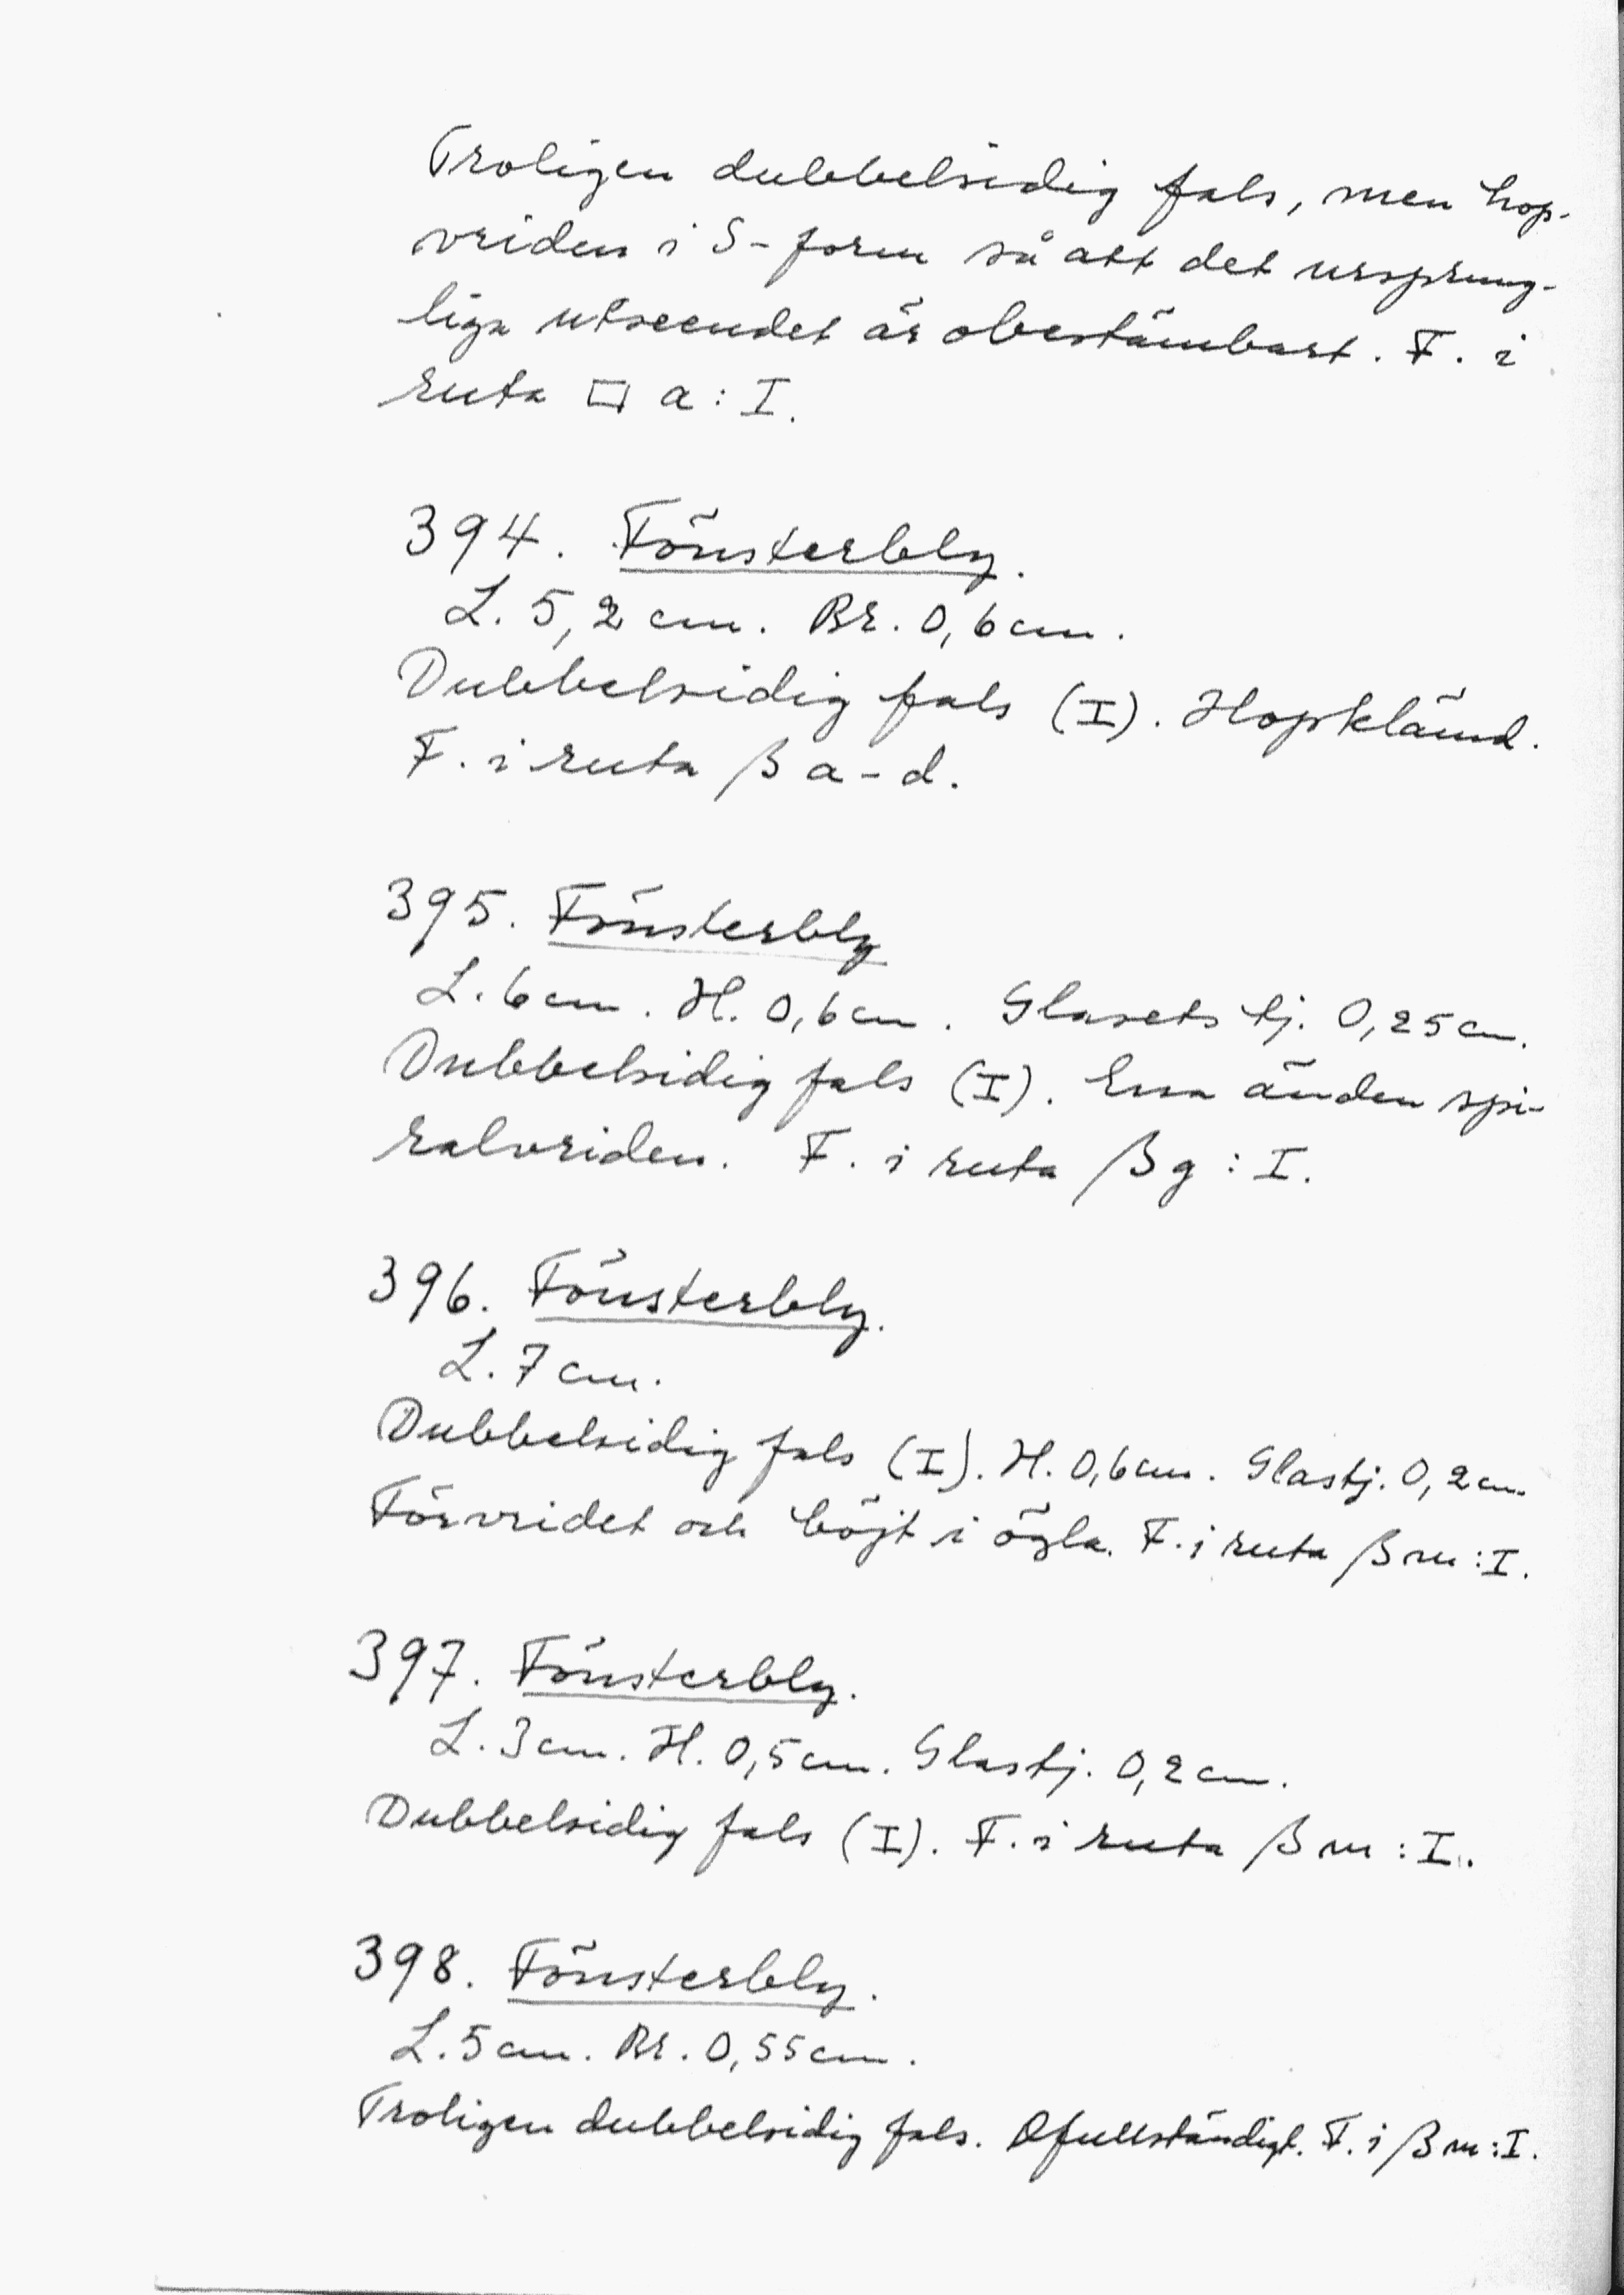 Troligen dubbelsidig fals, men hop-
vriden i S-form så att det ursprung-
liga utseendet är obestämbart. F. i
ruta □ a : I.
394. Fönsterbly.
L. 5,2 cm. Br. 0,6 cm.
Dubbelsidig fals (I). Hopklämd.
F. i ruta β a-d.
395. Fönsterbly
L. 6 cm. H. 0,6 cm. Glasets tj. 0,25 cm.
Dubbelsidig fals (I). Ena änden spi-
ralvriden. F. i ruta β g : I.
396. Fönsterbly.
L. 7 cm.
Dubbelsidig fals (I). H. 0,6 cm. Glastj. 0,2 cm.
Förvridet och böjt i ögla. F. i ruta β m : I.
397. Fönsterbly.
L. 3 cm. H. 0,5 cm. Glastj. 0,2 cm.
Dubbelsidig fals (I). F. i ruta β m : I.
398. Fönsterbly.
L. 5 cm. Br. 0,55 cm.
Troligen dubbelsidig fals. Ofullständigt. F. i β m : I.